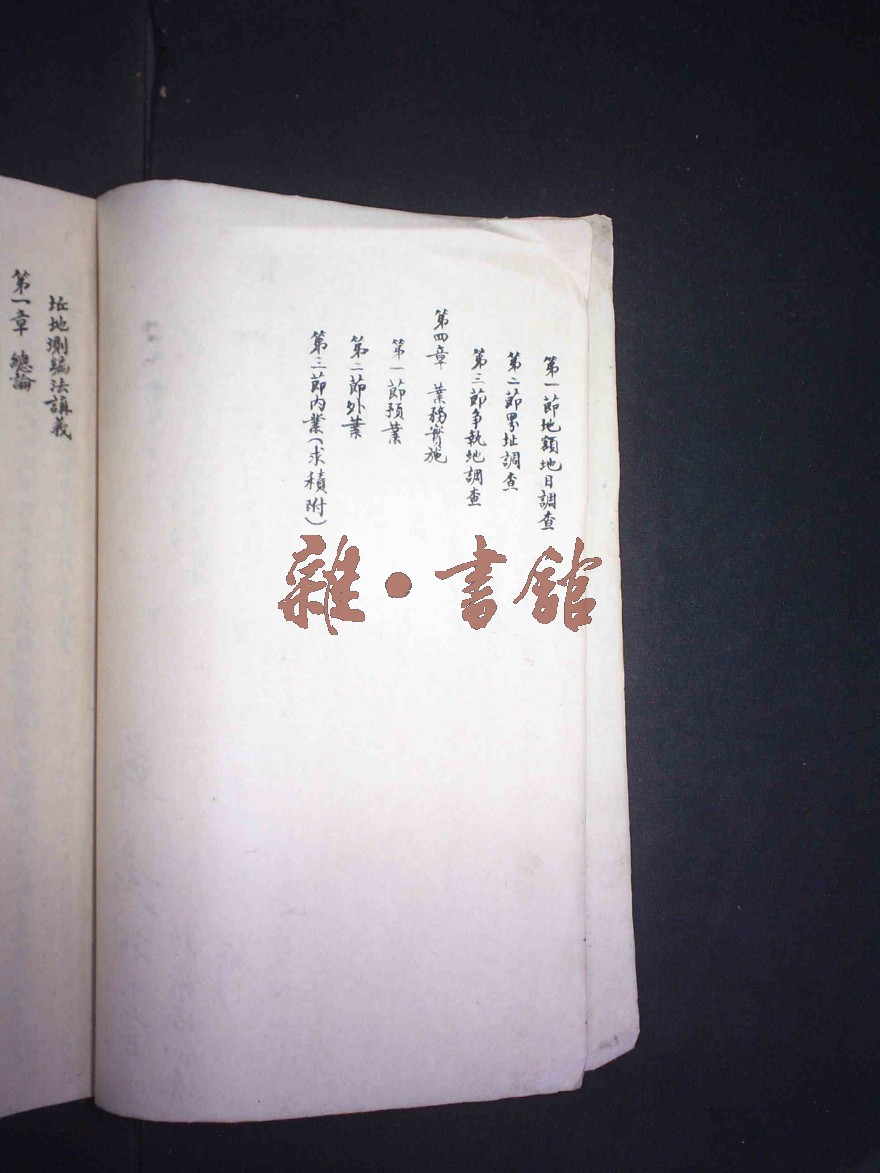 第一節地類地目調查
第二節界址調查
第三節争執地調查
第四章 業務實施
第一節預業
第二節外業
第三節内業(求積附)
址地測編法講義
第一章 總論
雜·書館